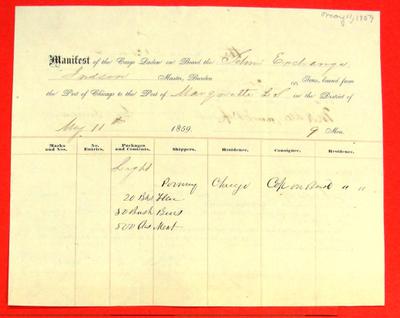 May 11, 1859
Manifest of the Cargo Laden on Board the Schr Exchange
Master, Burden Tons, bound from
the Port of Chicago to the Port of Marquette L S in the District of
May 11th 1859. 9 Men.
Marks and Nos. No. Entries. Packages and Contents. Shippers. Residence. Consignee. Residence.
Light
Chicago on Board " "
20 Bbls Flour
50 Bush
500 lbs Meat